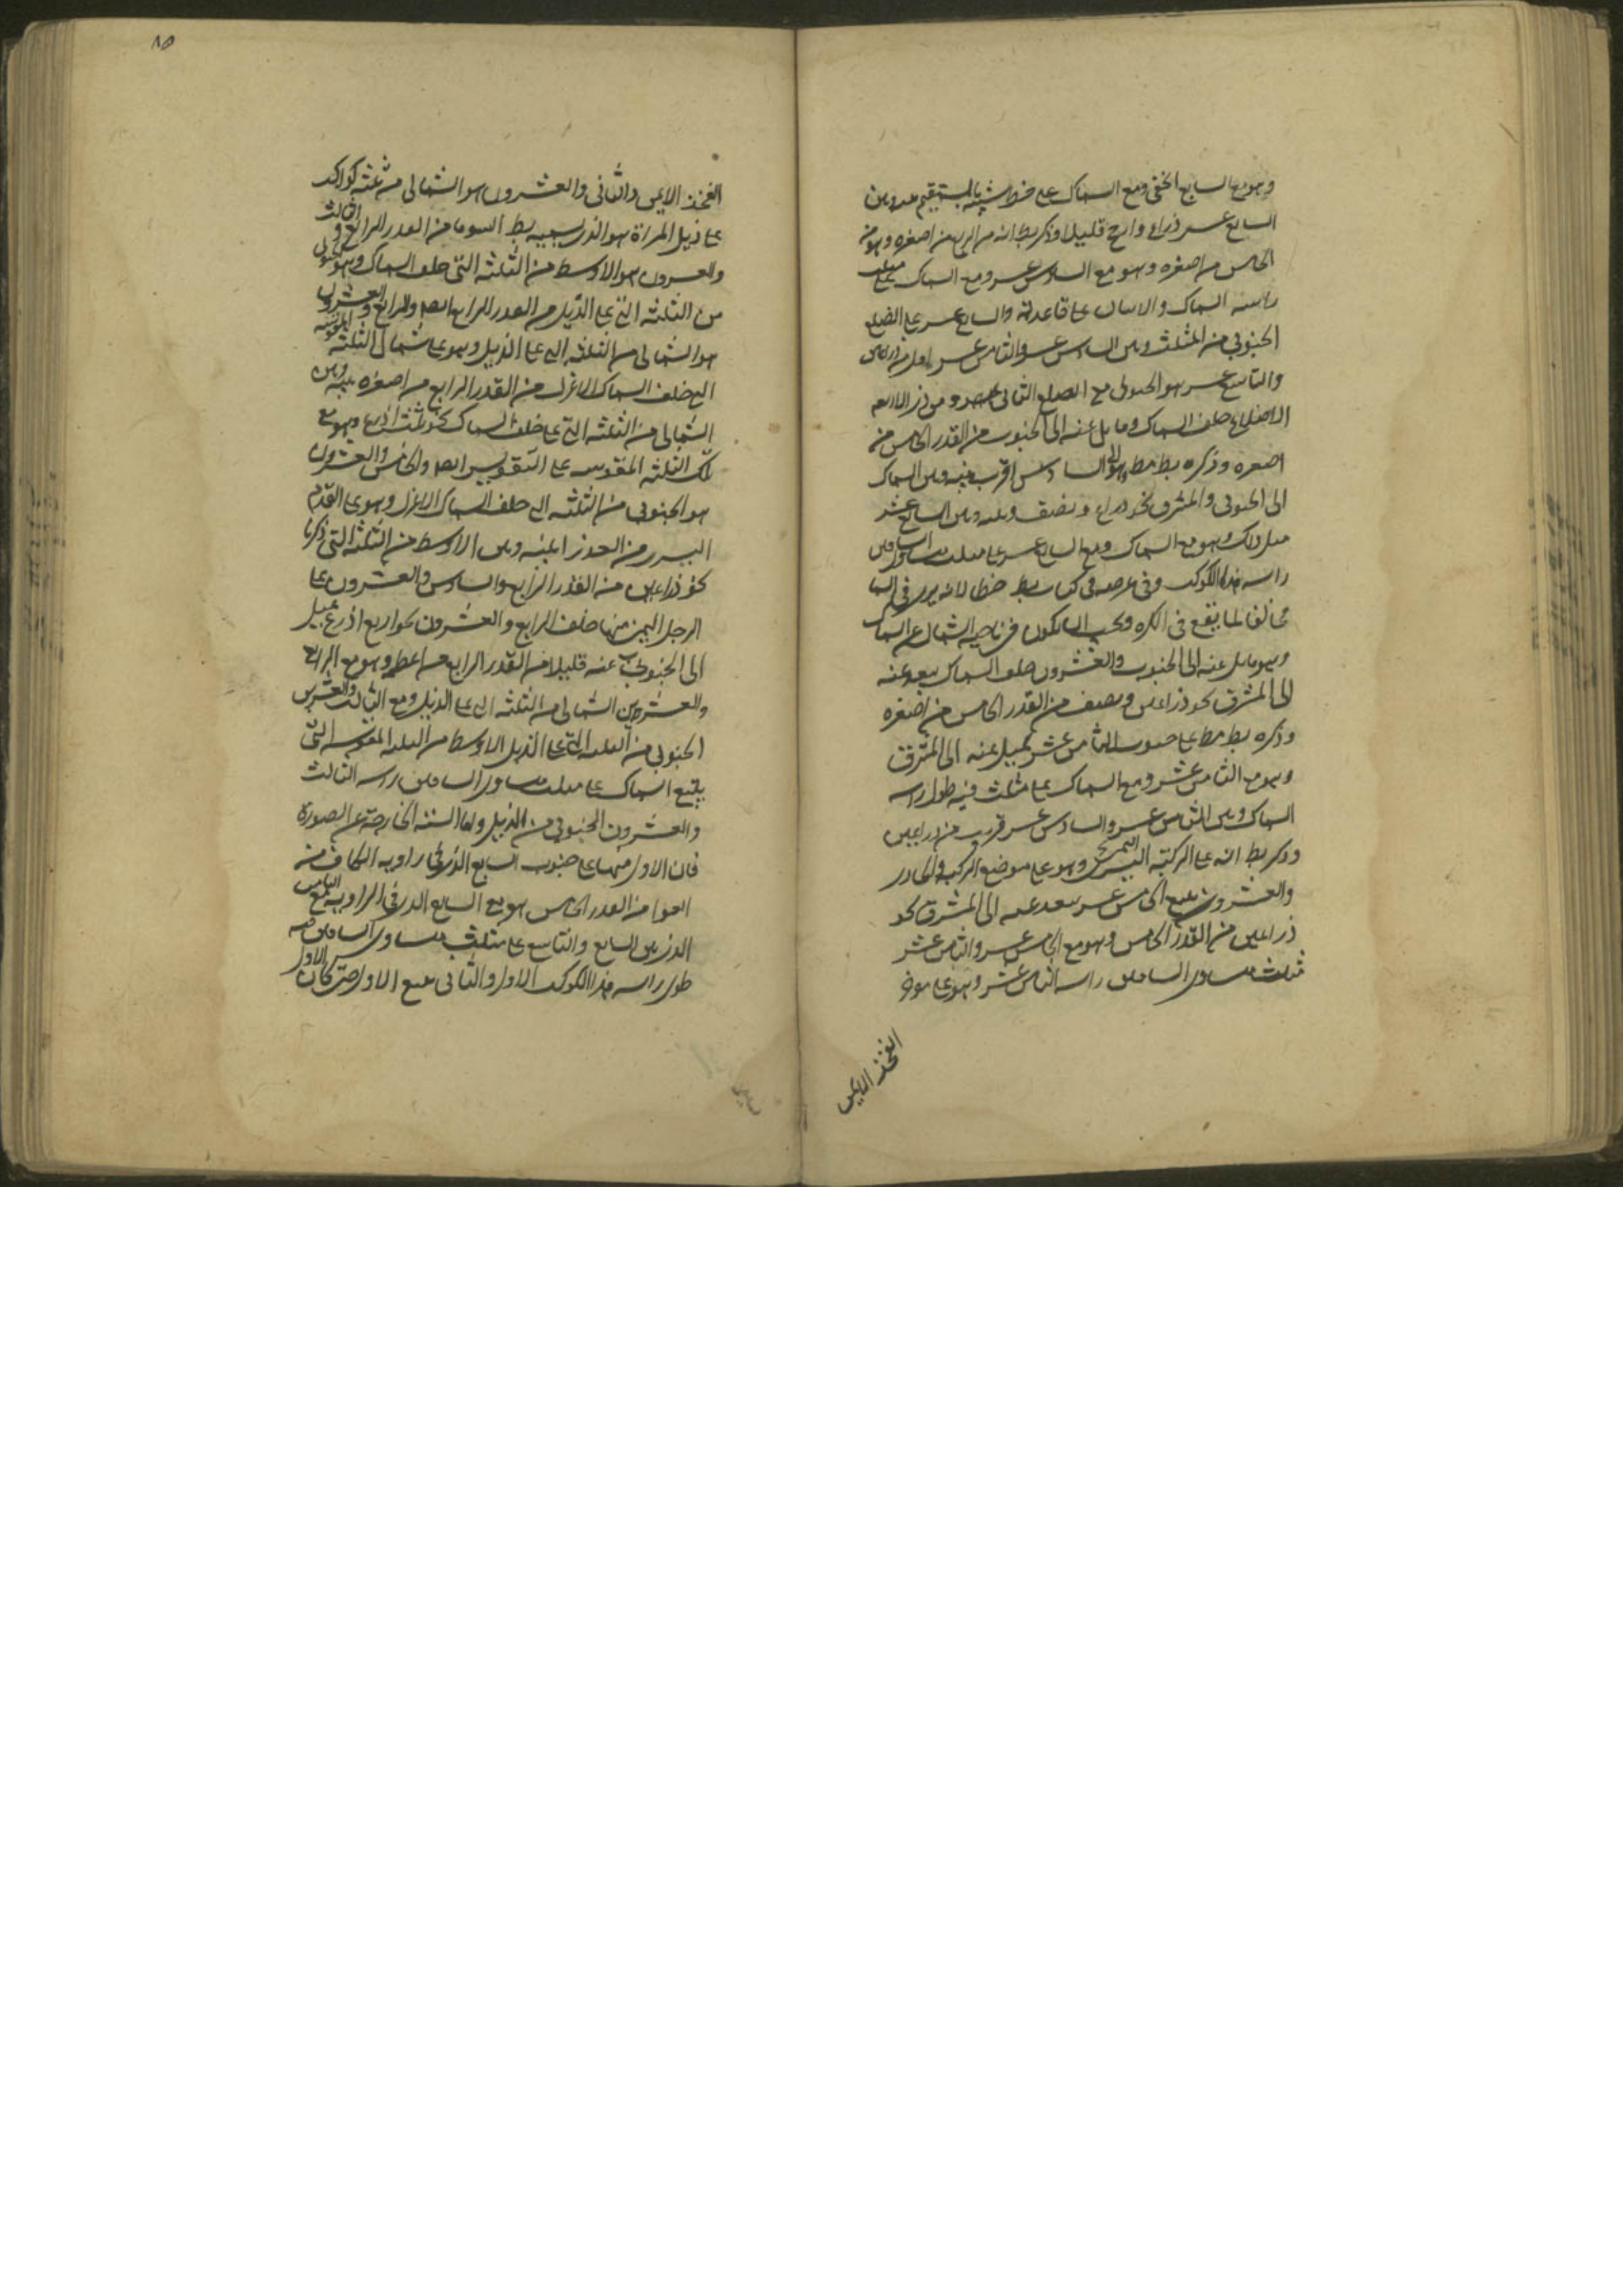 وهو مع السابع الخفى ومع السماك على خط شبيه بالمستقيم وبين
السابع عشر ذراع وارجح قليلا وذكر بط انه من الرابع من اصغره وهو من
الخامس من اصغره وهو مع السادس عشر ومع السماك على مثلث
راسه السماك والاثنان على قاعدته والسابع عشر على الضلع
الجنوبى من المثلث وبين السادس عشر والثامن عشر اقل من ذراعين
والتاسع عشر هو الجنوبى مع الضلع الثانى من ذى الاربعة
الاضلاع خلف السماك ومايل عنه الى الجنوب من القدر الخامس من
اصغره وذكره بط مطلقا السادس اقرب بينه وبين السماك
الى الجنوب والمشرق نحو ذراع ونصف وبينه وبين السابع عشر
مثل ذلك وهو مع السماك ومع السابع عشر على مثلث متساوى الساقين
راسه هذا الكوكب وفى عرضه فى كتاب بط خطا لانه يرى فى السما
مخالفا لما يقع فى الكره ويجب ان يكون فى ناحية الشمال عن السماك
وهو مايل عنه الى الجنوب والعشرون خلف السماك يبعد عنه
الى المشرق نحو ذراعين ونصف من القدر الخامس من اصغره
وذكره بط مطلقا على جنوب الثامن عشر يميل عنه الى المشرق
وهو مع الثامن عشر ومع السماك على مثلث فيه طول راسه
السماك وبين الثامن عشر والسادس عشر قريب من ذراعين
وذكر بط انه على الركبة اليسرى وهو على موضع الركب
والعشرون يتبع الخامس عشر يبعد عنه الى المشرق نحو
ذراعين من القدر الخامس وهو مع الخامس عشر والثامن عشر
مثلث متساوى الساقين راسه الثامن عشر وهو على موخر
الفخذ الايمن
٨٥
الفخذ الايمن والثانى والعشرون هو الشمالى من ثلثة كواكب
على ذيل المراة هو الذى يسميه بط السرما من القدر الرابع والثالث
والعشرون هو الاوسط من الثلثة التى خلف السماك وهو الجنوبى
من الثلثه التى على الذيل من القدر الرابع ايضا والرابع والعشرون
هو الشمالى من الثلثه التى على الذيل وهو على شمال الثلثه المقوسه
التى خلف السماك الاعزل من القدر الرابع من اصغره بينه وبين
الشمالى من الثلثه التى على خلف السماك نحو ثلث اذرع وهو مع
تلك الثلثه المقوسه على التقويس ايضا والخامس والعشرون
هو الجنوبى من الثلثه التى خلف السماك الاعزل وهو على القدم
اليسرى من العذرا بينه وبين الاوسط من الثلثه التى ذكرنا
نحو ذراعين من القدر الرابع والسادس والعشرون على
الرجل اليمنى منها خلف الرابع والعشرون نحو اربع اذرع يميل
الى الجنوب عنه قليلا من القدر الرابع من اعظمه وهو مع الرابع
والعشرين الشمالى من الثلثه التى على الذيل ومع الثالث والعشرين
الجنوبى من الثلثه التى على الذيل الاوسط من الثلثه المقوسه التى
يتبع السماك على مثلث متساوى الساقين راسه الثالث
والعشرون الجنوبى من الذيل واما الستة الخارجة عن الصورة
فان الاول منها على جنوب السابع الذى فى زاوية الكاف من
العوا من القدر الخامس هو مع السابع الذى فى الزاوية ومع الثامن
الذى بين السابع والتاسع على مثلث متساوى الساقين فيه
طول راسه هذا الكوكب الاول والثانى يتبع الاول